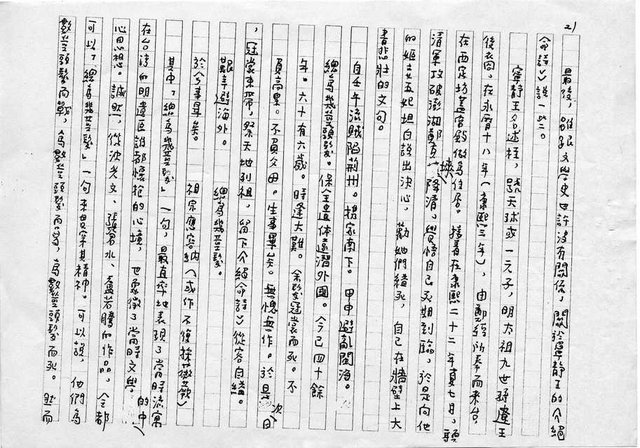 21
最後，雖跟文學史也許沒有關係，關於寧靜王的介紹
命詩》說一些。
寧靜王名述桂，號天球或一元子，明太祖九世孫遼王
後裔。在永曆十八年（康熙三年），由鄭經所奉而來台，
在西定坊蓋宮殿做為住居。接着在康熙二十二年夏七月，聽
清軍攻破澎湖鄭克塽降清，覺悟自己死期到臨，於是向他
的姬妾五妃坦白說出決心，勸她們縊死，自己在牆壁上大
書悲壯的文句。
自壬午流賊陷荆州。携家南下。甲申避亂閩海。
總為幾莖頭髮。保全遺体遠潛外國。今已四十餘
年。六十有六歲。時逢大難。全髮冠裳而死。不
負高皇。不負父母。生事畢矣。無愧無怍。於是次日
冠裳束帶，祭天地列祖，留下介紹《命詩》從容自縊。
艱辛避海外。　總為幾莖髮。
於今事畢矣。　祖宗應容納（或作不復採薇蕨）
其中「總為幾莖髮」一句，最直率地表現了當時流寓
在台灣的明遺臣誰都懷抱的心境，也象徵了當時文學的中
心思想。誠然，從沈光文、張若水、盧若騰的作品，全都
可以「總為幾莖髮」一句來貫穿其精神。可以說，他們為
數莖頭髮而戰，為數莖頭髮而爲，為數莖頭髮而死。然而